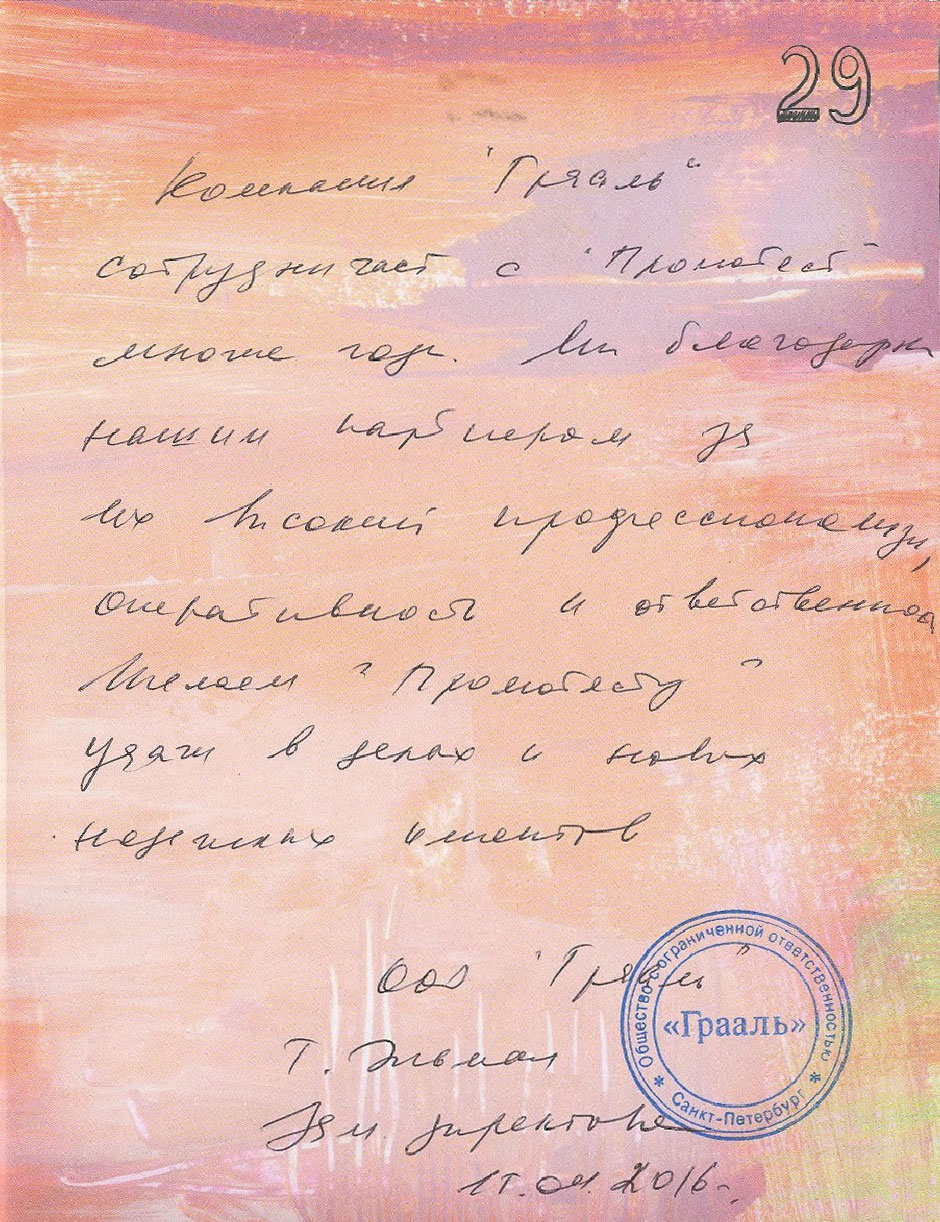 29
Компания "Грааль"
сотрудничает с "Промотест"
многие годы. Мы благодарны
нашим партнерам за
их высокий профессионализм,
оперативность и ответственность
Желаем "Промотесту"
удачи в делах и новых
надежных клиентов
ООО "Грааль"
Т.
Зам. директора
2016г.
Общество с ограниченной ответственностью
«Грааль»
* Санкт-Петербург *